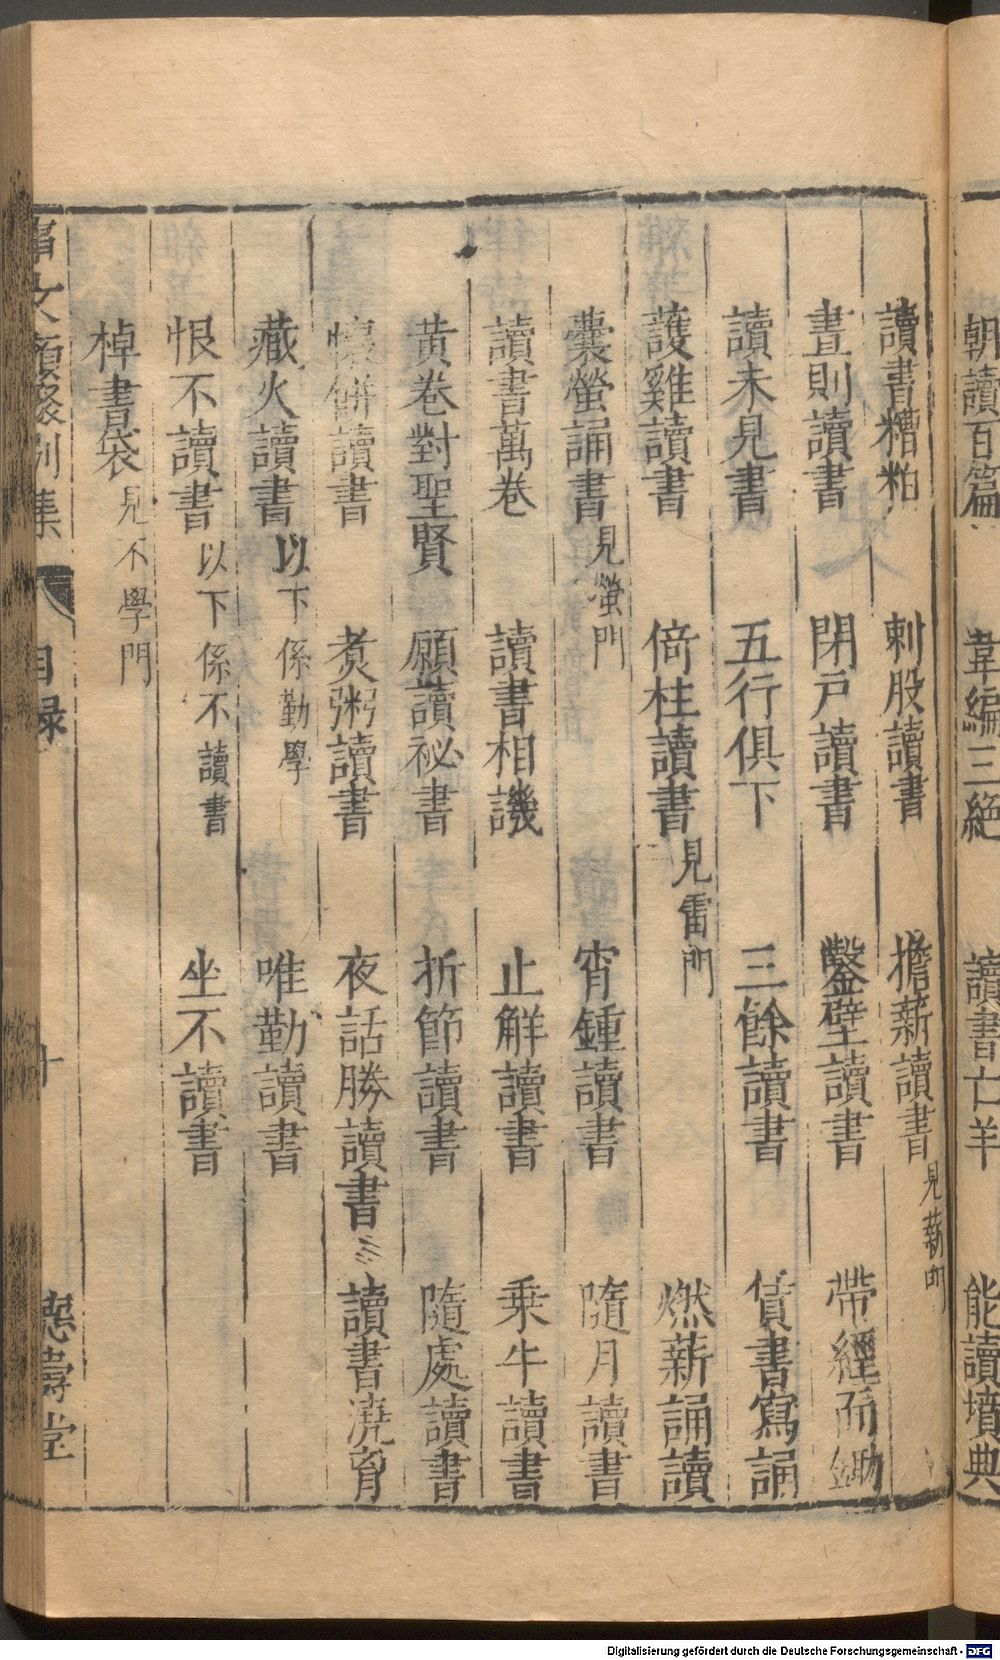 朝讀百篇 韋編三絶 讀書亡羊 能讀墳典
讀書糟粕 刺股讀書 擔薪讀書見薪門
晝則讀書 閉戸讀書 鑿壁讀書 帶經而鋤
讀未見書 五行俱下 三餘讀書 賃書寫誦
護雞讀書 倚柱讀書見雷門 燃薪誦讀
囊螢誦書見螢門 宵鍾讀書 隨月讀書
讀書萬卷 讀書相譏 止觧讀書 乗牛讀書
黄卷對聖賢 願讀祕書 折節讀書 隨處讀書
懷餅讀書 煑粥讀書 夜話勝讀書 讀書澆胷
藏火讀書以下係勤學 唯勤讀書
恨不讀書以下係不讀書 坐不讀書
棹書袋見不學門
事文類聚别集 目録 十 德壽堂
Digitalisierung gefördert durch die Deutsche Forschungsgemeinschaft - DFG